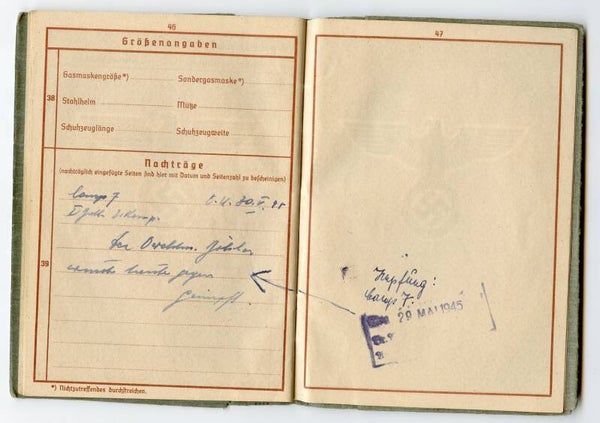 46
Größenangaben
38
Gasmaskengröße*) Sondergasmaske*)
Stahlhelm Mütze
Schuhzeuglänge Schuhzeugweite
Nachträge
(nachträglich eingefügte Seiten sind hier mit Datum und Seitenzahl zu bescheinigen)
Camp 7
39
wurde heute gegen
geimpft.
*) Nichtzutreffendes durchstreichen.
47
Impfung:
Camp 7.
29 MAI 1945